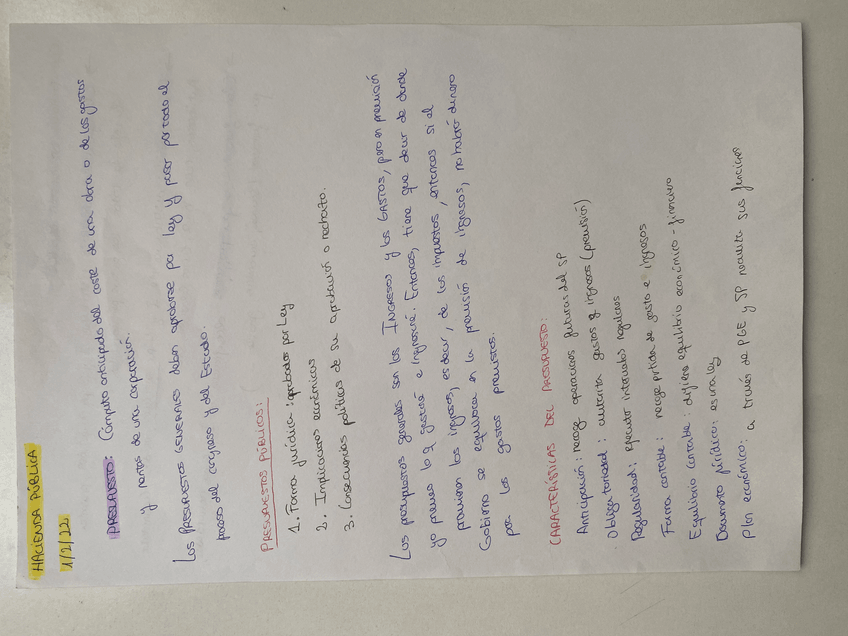 HACIENDA PÚBLICA
1/2/22
PRESUPUESTO: Cómputo anticipado del coste de una obra o de los gastos
y rentas de una corporación.
Los PRESUPUESTOS GENERALES deben aprobarse por ley y pasar por todo el
proceso del congreso y del Estado.
PRESUPUESTOS PÚBLICOS:
1. Forma jurídica: aprobados por Ley
2. Implicaciones económicas
3. Consecuencias políticas de su aprobación o rechazo.
Los presupuestos generales son los INGRESOS y los GASTOS, pero en previsión
yo preveo lo q gastaré e ingresaré. Entonces, tiene que decir de donde
provienen los ingresos, es decir, de los impuestos, entonces si el
Gobierno se equivoca en la previsión de ingresos, no habrá dinero
para los gastos previstos.
CARACTERÍSTICAS DEL PRESUPUESTO:
Anticipación: recoge operaciones futuras del SP
Obligatoriedad: autoriza gastos e ingresos (previsión)
Regularidad: ejecuta intervalos regulares
Forma contable: recoge ptida de gasto e ingresos
Equilibrio contable: equilibrio económico-financiero
Documento jurídico: es una ley
Plan económico: a través de PGE y SP realiza sus funciones